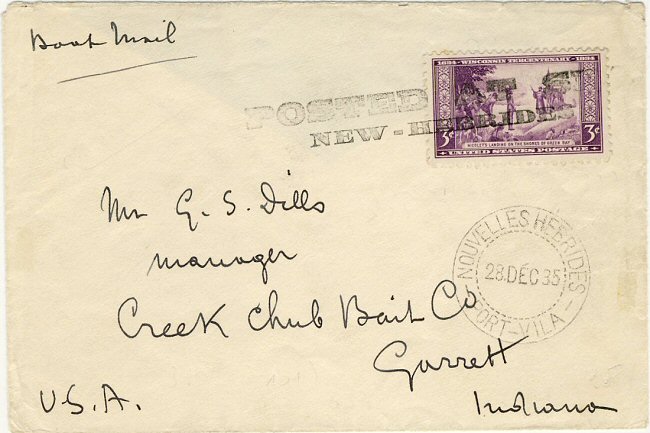 Boat Mail
1634 - WISCONSIN TERCENTENARY - 1934
POSTED AT S
NEW - HEBRIDES
3¢ 3¢
NICOLET'S LANDING ON THE SHORES OF GREEN BAY
UNITED STATES POSTAGE
Mr G. S. Dills
manager
Creek Chub Bait Co
Garrett
Indiana
U.S.A.
NOUVELLES HEBRIDES
28 DÉC 35
PORT-VILA